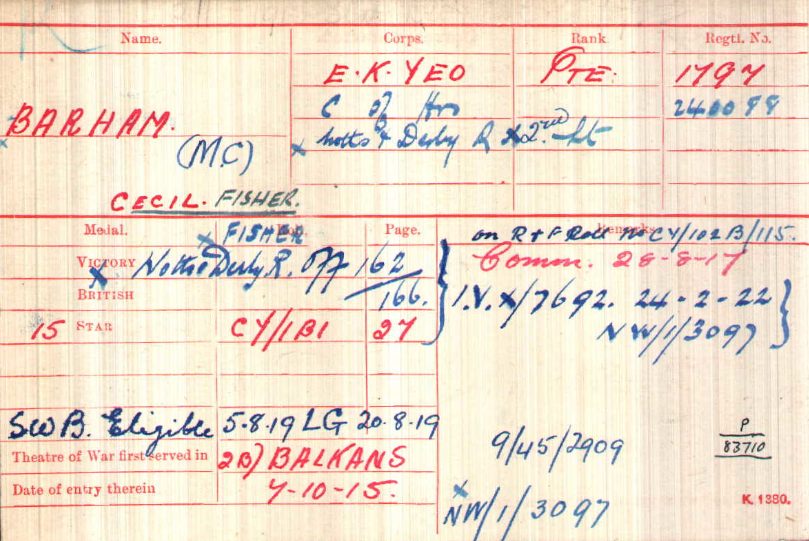 Name. Corps. Rank Regtl. No.
E.K. YEO PTE. 1797
C of Hrs 240088
BARHAM. x Notts & Derby R x 2nd Lt
(M.C)
CECIL. FISHER.
Medal. Page. Remarks
x FISHER on R & F Roll No CY/102B/115.
VICTORY x Notts & Derby R. Off 162 Comm. 28-8-17
BRITISH 166. I.V. x/7692. 24-2-22
NW/1/3097
15 STAR CY/1B1 27
SWB. Eligible 5.8.19 LG 20.8.19
P
83710
9/45/2909
Theatre of War first served in 2B) BALKANS
Date of entry therein 7-10-15.
x NW/1/3097
K. 1380.